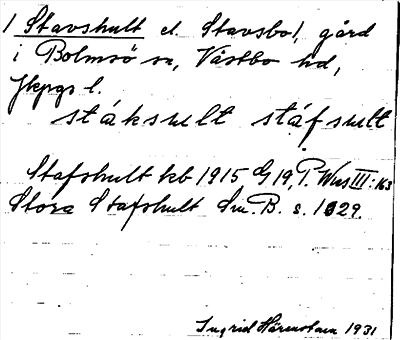 1 Stavshult el. Stavsbo 1, gård
i Bolmsö sn, Västbo hd,
Jkpgs l.
stáksult stáfsult
Stafshult kb 1915 G 19, P. Wies III: 163
Stora Stafshult Sm. B. s. 1029.
Ingrid Härenstam 1931